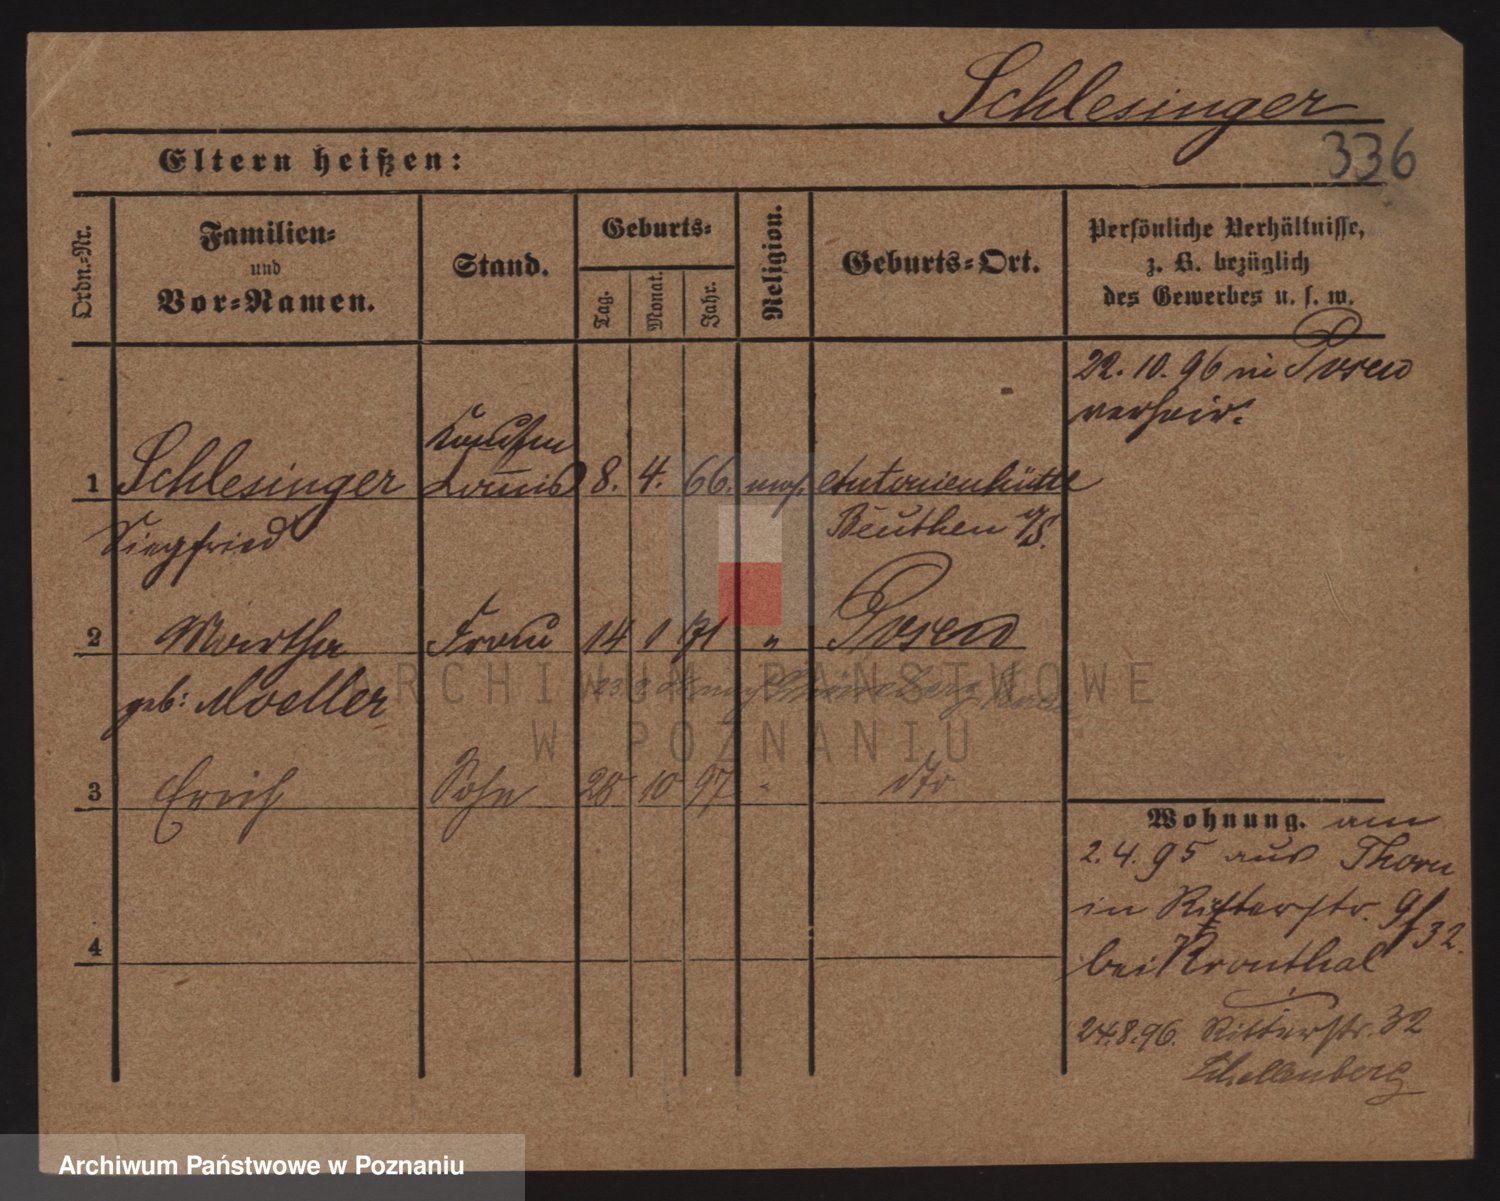 Schlesinger
336
Eltern heißen:
Ordn.-Nr.
Familien-
und
Vor-Namen.
Stand.
Geburts-
Tag.
Monat.
Jahr.
Religion.
Geburts-Ort.
Persönliche Verhältnisse,
z. B. bezüglich
des Gewerbes u. s. w.
22. 10. 96 in Posen
verheir.
Kaufm
1 Schlesinger 8. 4. 66. mos. Antonienhütte
Siegfried Beuthen O/S.
2 Martha Frau 14 1 71 " Posen
geb: Moeller
3 Erich Sohn 28 10 97 " dto
4
Wohnung. am
2. 4. 95 aus Thorn
in Ritterstr. 9/32.
bei Kronthal
24.8.96. Ritterstr. 32
Schellenberg
ARCHIWUM PAŃSTWOWE
W POZNANIU
Archiwum Państwowe w Poznaniu